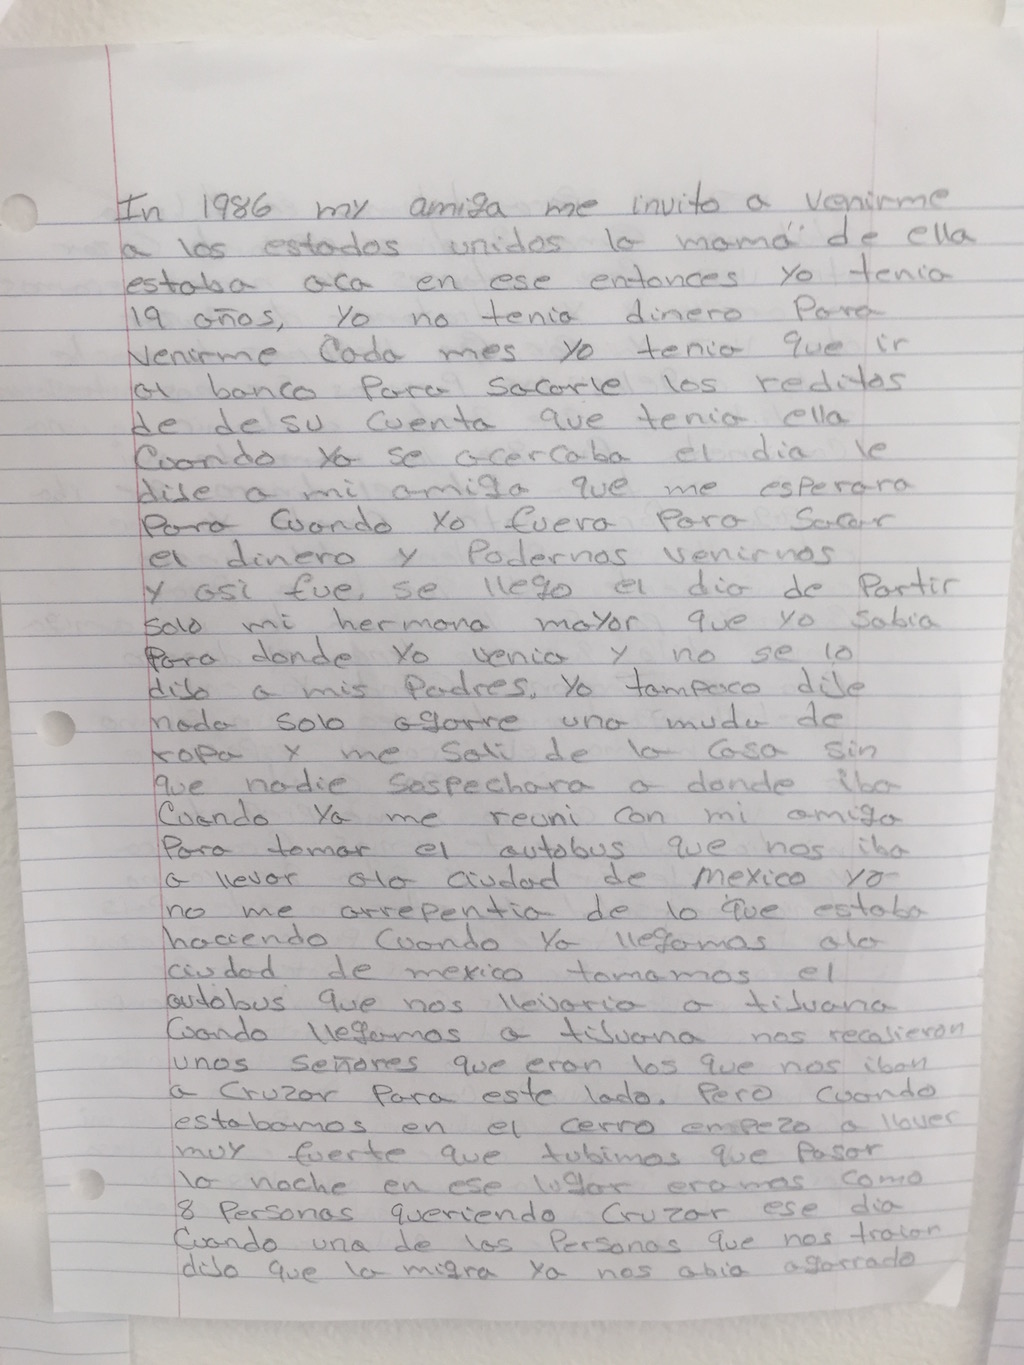 In 1986 my amiga me invito a venirme
a los estados unidos la mamá de ella
estaba aca en ese entonces yo tenia
19 años, yo no tenia dinero para
venirme Cada mes yo tenia que ir
al banco para sacarle los reditos
de de su cuenta que tenia ella
Cuando ya se acercaba el dia le
dije a mi amiga que me esperara
para cuando yo fuera para sacar
el dinero y podernos venirnos
y asi fue, se llego el dia de partir
solo mi hermana mayor que yo sabia
para donde yo venia y no se lo
dijo a mis padres, yo tampoco dije
nada solo agarre una muda de
ropa y me sali de la casa sin
que nadie sospechara a donde iba
Cuando ya me reuni con mi amiga
para tomar el autobus que nos iba
a llevar ala ciudad de mexico yo
no me arrepentia de lo que estaba
haciendo cuando ya llegamos ala
ciudad de mexico tomamos el
autobus que nos llevaria a tijuana
Cuando llegamos a tijuana nos recojieron
unos señores que eran los que nos iban
a cruzar para este lado. Pero cuando
estabamos en el cerro empezo a llover
muy fuerte que tubimos que pasar
la noche en ese lugar eramos como
8 personas queriendo cruzar ese dia
Cuando una de las personas que nos traian
dijo que la migra ya nos abia agarrado